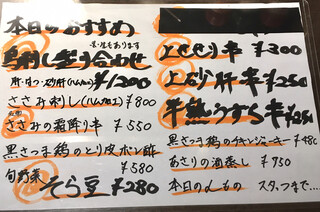 本日のおすすめ
鳥刺し盛り合わせ
肝・なつ・ズリ肝(ハムカエ) ¥1200
ささみ刺し(ハムカエ) ¥800
ささみの霜降り串 ¥550
黒さつま鶏のとり皮ポン酢 ¥580
旬野菜 そら豆 ¥280
上せせり串 ¥300
上砂肝串 ¥250
半熟うずら串 ¥250
黒さつま鶏のチキンジャーキー ¥480
あさりの酒蒸し ¥750
本日の〆もの スタッフまで…